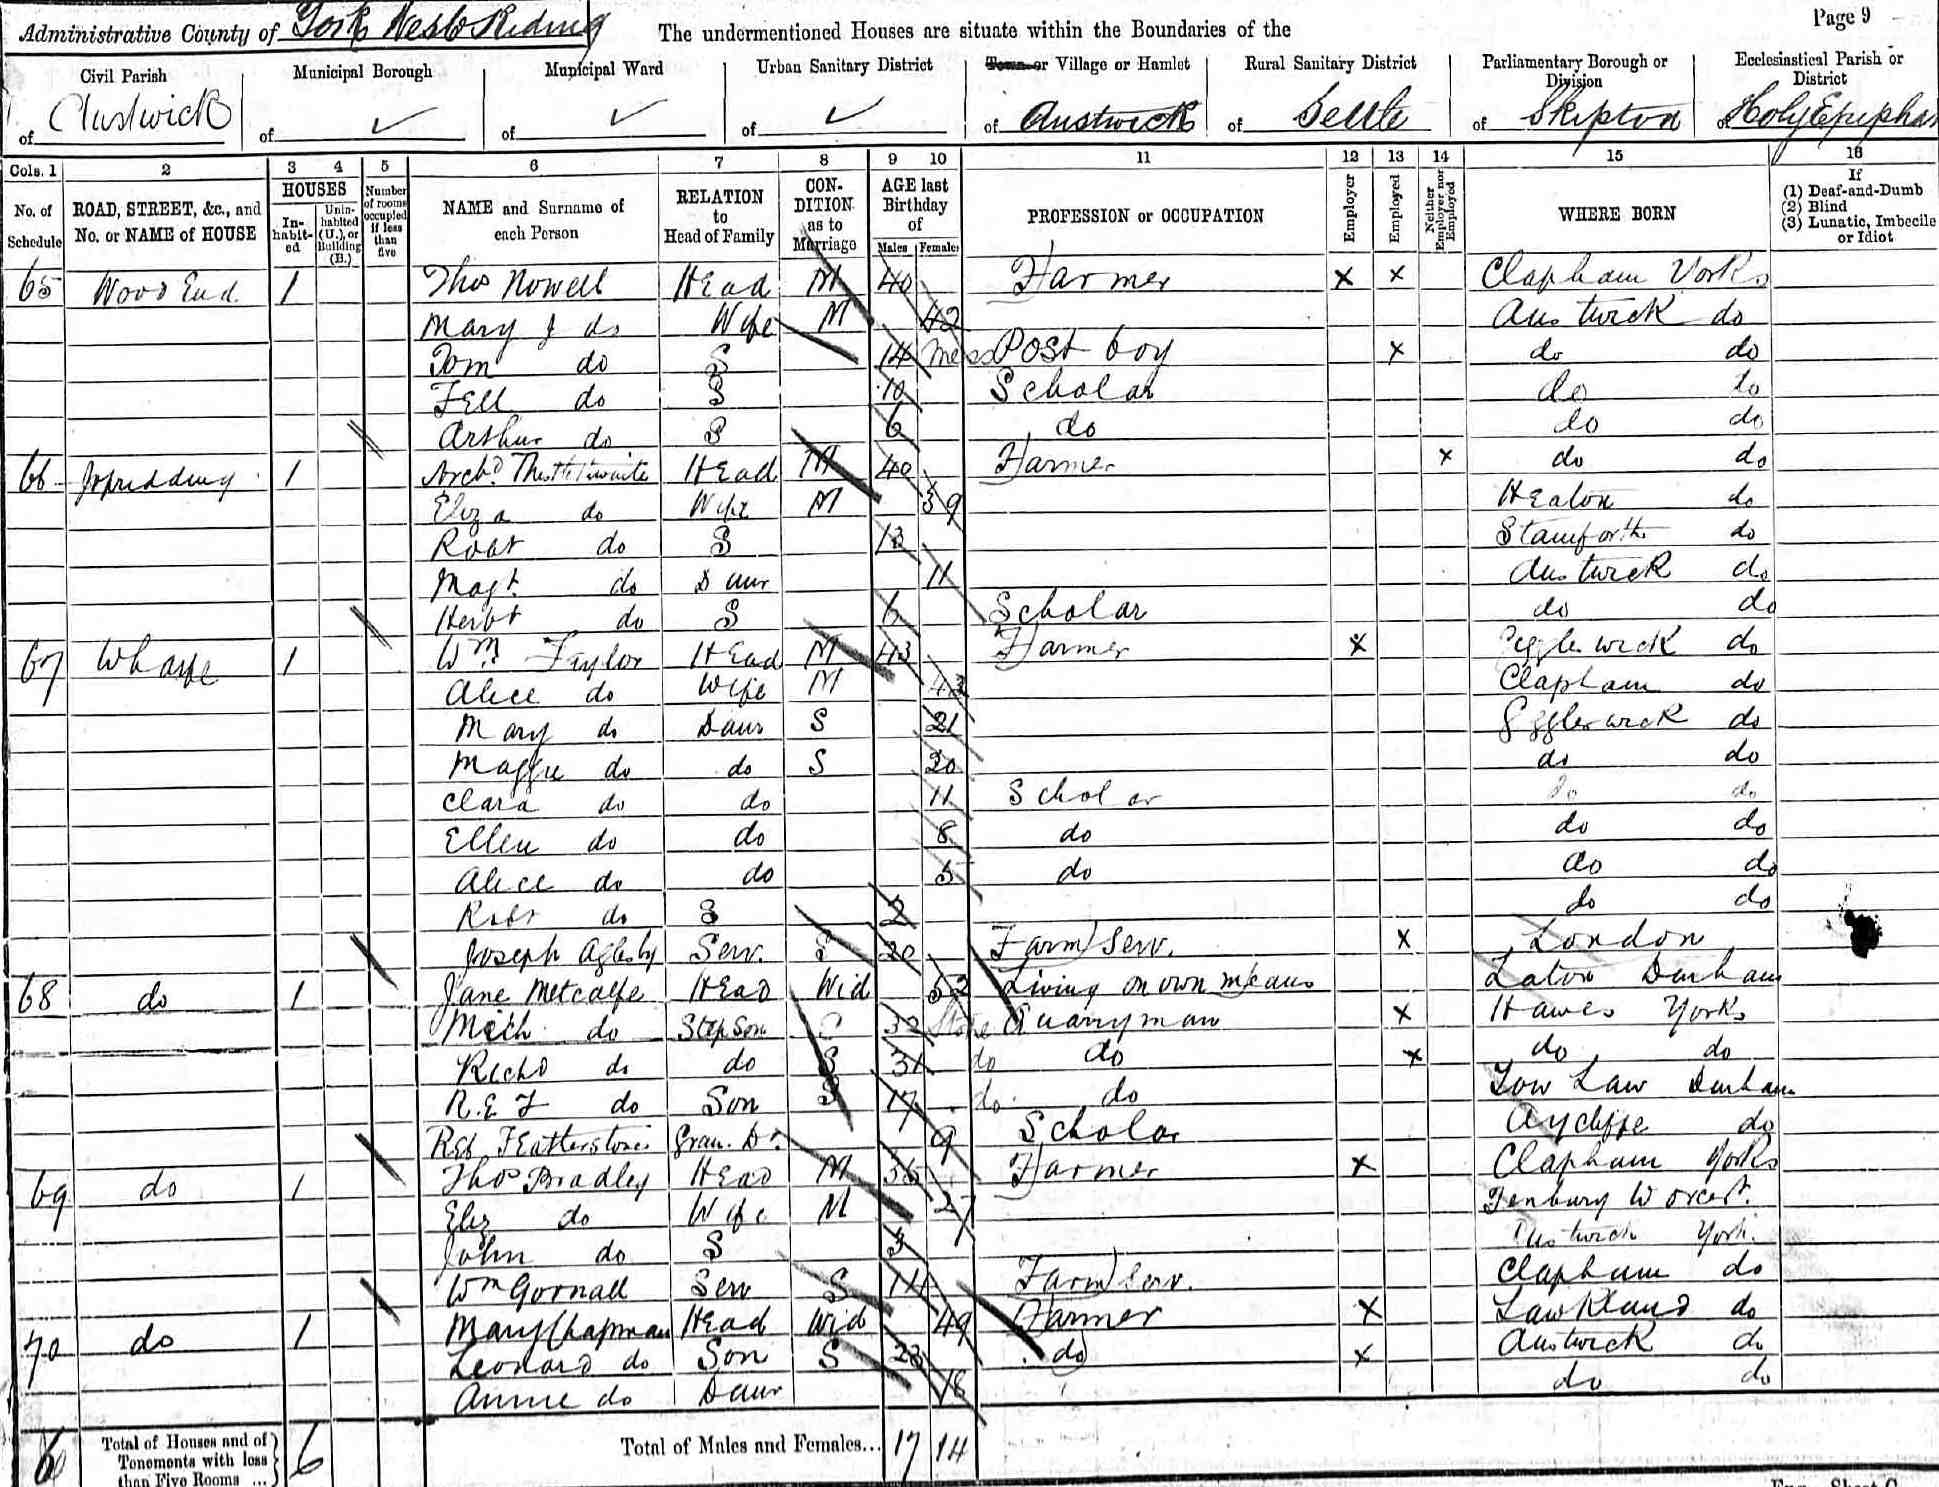 Administrative County of York West Riding The undermentioned Houses are situate within the Boundaries of the Page 9
Civil Parish Municipal Borough Municipal Ward Urban Sanitary District Town or Village or Hamlet Rural Sanitary District Parliamentary Borough or Division Ecclesiastical Parish or District
of Austwick of of of of Austwick of Settle of Skipton of Holy Epipha
Cols. 1 2 3 4 5 6 7 8 9 10 11 12 13 14 15 16
No. of Schedule ROAD, STREET, &c., and No. or NAME of HOUSE HOUSES In-habit-ed Unin-habited (U.), or Building (B.) Number of rooms occupied if less than five NAME and Surname of each Person RELATION to Head of Family CON-DITION as to Marriage AGE last Birthday of Males Females PROFESSION or OCCUPATION Employer Employed Neither Employer nor Employed WHERE BORN If (1) Deaf-and-Dumb (2) Blind (3) Lunatic, Imbecile or Idiot
65 Wood End 1 Thos Nowell Head M 40 Farmer x x Clapham Yorks
Mary J do Wife M 42 Austwick do
Tom do S 14 Mess Post boy x do do
Fell do S 10 Scholar do do
Arthur do S 6 do do do
66 1 Archd. Head M 40 Farmer x do do
Eliza do Wife M 39 Heaton do
Robt do S 13 Stainforth do
Magt. do Daur 11 Austwick do
Herbt do S 6 Scholar do do
67 Wharfe 1 Wm. Taylor Head M 43 Farmer x Giggleswick do
Alice do Wife M 43 Clapham do
Mary do Daur S 21 Giggleswick do
Maggie do do S 20 do do
Clara do do 11 Scholar do do
Ellen do do 8 do do do
Alice do do 5 do do do
Robt do S 2 do do
Joseph Aglesby Serv. S 20 Farm Serv. x London
68 do 1 Jane Metcalfe Head Wid 52 Living on own means Durham
Mich do Step Son S Stone Quarryman x Hawes Yorks
Richd do do S 31 do do x do do
R.E.T do Son S 17 do do Tow Law Durham
Reb Featherstone Gran. Dr. 9 Scholar Aycliffe do
69 do 1 Thos Bradley Head M 35 Farmer x Clapham Yorks
Eliz do Wife M 27 Tenbury Worcest.
John do S 3 Austwick York.
Wm Gornall Serv S 14 Farm Serv. Clapham do
70 do 1 Mary Chapman Head Wid 49 Farmer x Lawkland do
Leonard do Son S 23 do x Austwick do
Annie do Daur 18 do do
6 Total of Houses and of Tenements with less than Five Rooms ... 6 Total of Males and Females... 17 14